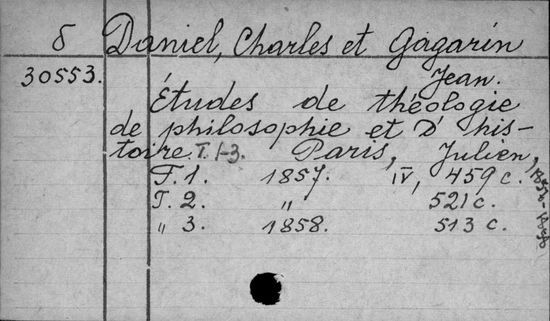 δ Daniel, Charles et Gagarin
30553. Jean.
Études de théologie
de philosophie et D' his-
toire. T. 1-3. Paris, Julien,
T. 1. 1857. IV, 459 c.
T. 2. " 521 c.
" 3. 1858. 513 c.